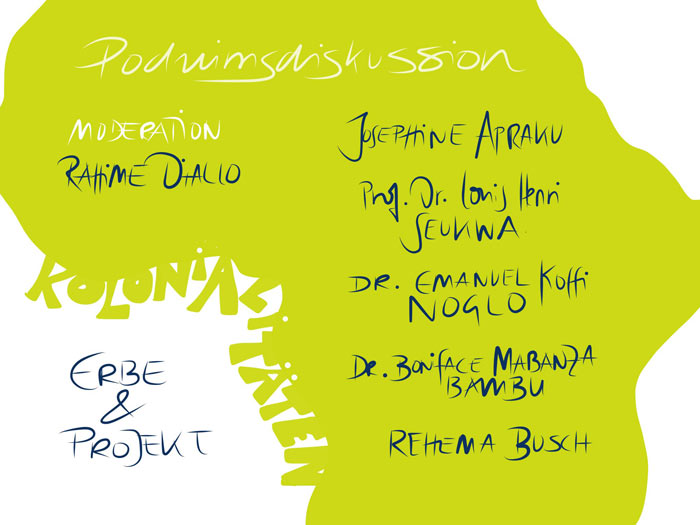 Poduimsdiskussion
MODERATION
RAHIME DIALLO
JOSEPHINE APRAKU
Prof. Dr. Louis Henri
SEUKWA
DR. EMANUEL Koffi
NOGLO
Dr. BONIFACE MABANZA
BAMBU
REHEMA BUSCH
KOLONIALITÄTEN
ERBE
&
PROJEKT